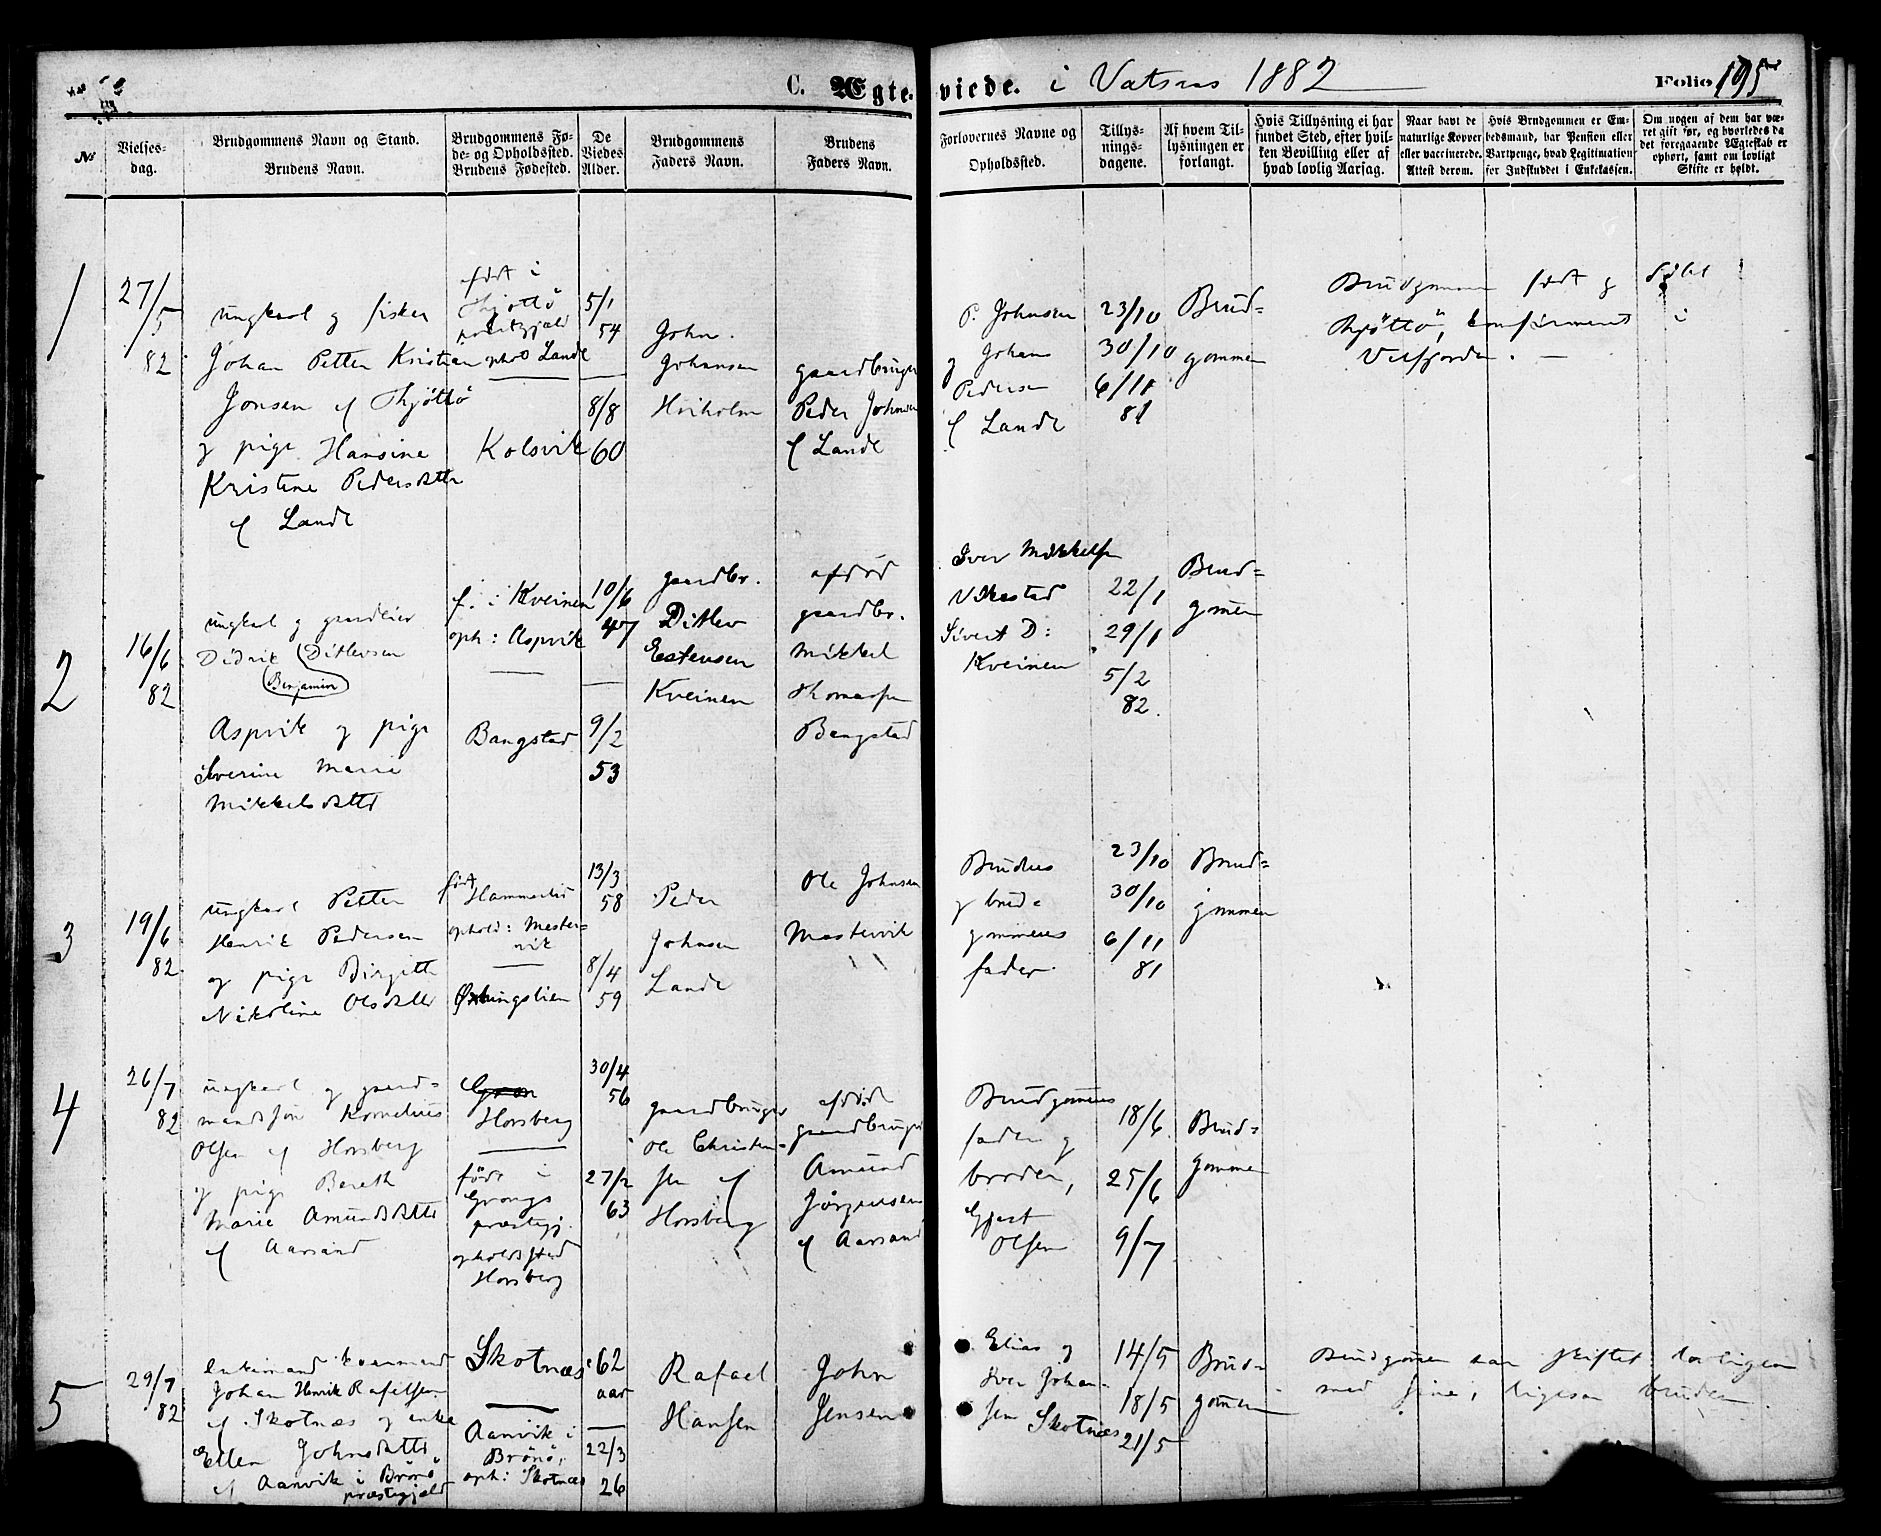 C. Ægte-
viede. i Vatsaas 1882
Folio 195
№
Vielses-
dag.
Brudgommens Navn og Stand.
Brudens Navn.
Brudgommens Fø-
de- og Opholdssted.
Brudens Fødested.
De
Viedes
Alder.
Brudgommens
Faders Navn.
Brudens
Faders Navn.
Forlovernes Navne og
Opholdssted.
Tillys-
nings-
dagene.
Af hvem Til-
lysningen er
forlangt.
Hvis Tillysning ei har
fundet Sted, efter hvil-
ken Bevilling eller af
hvad lovlig Aarsag.
Naar havt de
naturlige Kopper
eller vaccinerede.
Attest derom.
Hvis Brudgommen er Em-
bedsmand, har Pension eller
Vartpenge, hvad Legitimation
for Indskuddet i Enkekassen.
Om nogen af dem har væ-
ret gift før, og hvorledes da
det foregaaende Ægteskab er
ophørt, samt om lovligt
Skifte er holdt.
1
27/5
82
ungkarl og fisker
Johan Petter Kristian
Jonsen af Thjøttø
og pige Hansine
Kristine Pedersdtter
af Lande
født i
Thjøttø
præstegjeld
opho Lande
Kolsvik
5/1
54
8/8
60
John
Johansen
Hviholm
gaardbruger
Peder Johnsen
af Lande
P. Johnsen
og Johan
Pedersen
af Lande
23/10
30/10
6/11
81
Brud-
gommen
Brudgommen født og døbt i
Thjøttø, konfirmeret i
Velfjorden. —
2
16/6
82
ungkarl og gaardeier
Didrik Ditlevsen
Benjamin
Aspvik og pige
Severine Marie
Mikkelsdtter
f. i Kveinen
oph: Aspvik
Bangstad
10/6
47
9/2
53
gaardbr.
Ditlev
Estensen
Kveinen
afdød
gaardbr.
Mikkel
Thomassen
Bangstad
Iver Mikkelsen
Vikestad
Sivert D:
Kveinen
22/1
29/1
5/2
82.
Brud-
gomen
3
19/6
82
ungkarl Petter
Henrik Pedersen
og pige Birgitte
Nikoline Olsdtter
født
Hammerlid
ophold: Mester-
vik
Øxningslien
13/3
58
8/4
59
Peder
Johnsen
Lande
Ole Johnsen
Mestervik
Brudens
og brud-
gommens
fader
23/10
30/10
6/11
81
Brud-
gommen
4
26/7
82
ungkarl og gaard-
mandsøn Kornelius
Olsen af Horsberg
og pige Bereth
Marie Amundsdtter
af Aarsand
Horsberg
født i
Grongs
præstegj.
opholdssted
Horsberg
30/4
56
27/2
63
gaardbruger
Ole Christen-
sen af
Horsberg
afdød
gaardbruger
Amund
Jørgensen
af Aarsand
Brudgomens
fader og
broder,
Gjert
Olsen
18/6
25/6
9/7
Brud-
gommen
5
29/7
82
Enkemand
Johan Henrik Rafelsen
af Skotnæs og enke
Ellen Johnsdtter
af Aanvik i Brønø
præstegjeld
Skotnæs
Aanvik i
Brønø,
oph: Skotnæs
62
aar
22/3
26
Rafael
Hansen
John
Jensen
Elias og
Iver Johan-
sen Skotnæs
14/5
18/5
21/5
Brud-
gomen
Brudgomen har skiftet lovligen
med sine, ligesaa bruden